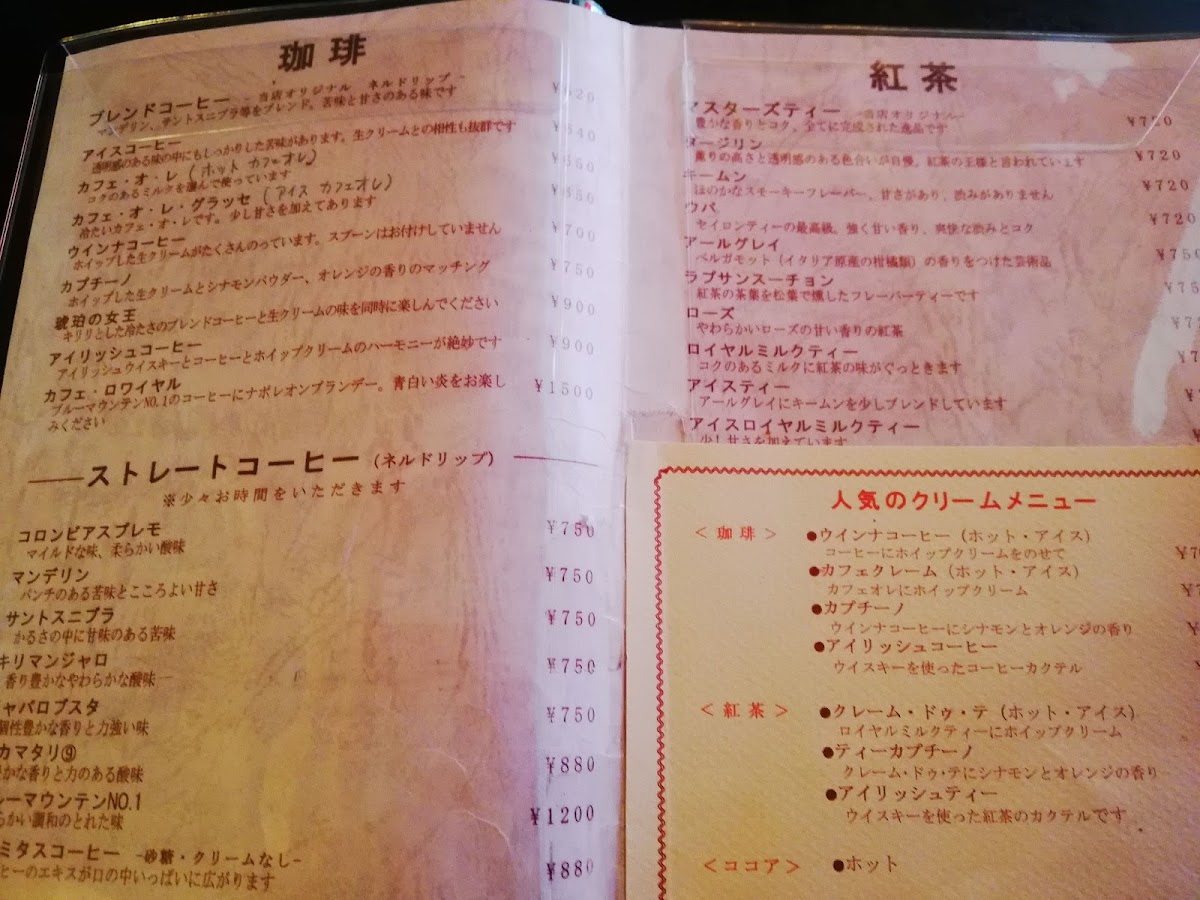 珈琲
ブレンドコーヒー -当店オリジナル ネルドリップ- ¥620
マンデリン、サントスニブラ等をブレンド。苦味と甘さのある味です
アイスコーヒー ¥640
透明感のある味の中にもしっかりした苦味があります。生クリームとの相性も抜群です
カフェ・オ・レ (ホット カフェオレ) ¥650
コクのあるミルクを選んで使っています
カフェ・オ・レ・グラッセ (アイス カフェオレ) ¥650
冷たいカフェ・オ・レです。少し甘さを加えてあります
ウインナコーヒー ¥700
ホイップした生クリームがたくさんのっています。スプーンはお付けしていません
カプチーノ ¥750
ホイップした生クリームとシナモンパウダー、オレンジの香りのマッチング
琥珀の女王 ¥900
キリリとした冷たさのブレンドコーヒーと生クリームの味を同時に楽しんでください
アイリッシュコーヒー ¥900
アイリッシュウイスキーとコーヒーとホイップクリームのハーモニーが絶妙です
カフェ・ロワイヤル ¥1500
ブルーマウンテンNO.1のコーヒーにナポレオンブランデー。青白い炎をお楽し
みください
ストレートコーヒー (ネルドリップ)
※少々お時間をいただきます
コロンビアスプレモ ¥750
マイルドな味、柔らかい酸味
マンデリン ¥750
パンチのある苦味とこころよい甘さ
サントスニブラ ¥750
かるさの中に甘味のある苦味
キリマンジャロ ¥750
香り豊かなやわらかな酸味
ャバロブスタ ¥750
個性豊かな香りと力強い味
カマタリ⑨ ¥880
かな香りと力のある酸味
ルーマウンテンNO.1 ¥1200
らかい調和のとれた味
ミタスコーヒー -砂糖・クリームなし- ¥880
ヒーのエキスが口の中いっぱいに広がります
紅茶
マスターズティー -当店オリジナル- ¥750
豊かな香りとコク、全てに完成された逸品です
ダージリン ¥720
薫りの高さと透明感のある色合いが自慢。紅茶の王様と言われています
キームン ¥720
ほのかなスモーキーフレーバー、甘さがあり、渋みがありません
ウバ ¥720
セイロンティーの最高級。強く甘い香り、爽快な渋みとコク
アールグレイ ¥750
ベルガモット（イタリア原産の柑橘類）の香りをつけた芸術品
ラプサンスーチョン ¥75
紅茶の茶葉を松葉で燻したフレーバーティーです
ローズ ¥7
やわらかいローズの甘い香りの紅茶
ロイヤルミルクティー ¥7
コクのあるミルクに紅茶の味がぐっときます
アイスティー ¥
アールグレイにキームンを少しブレンドしています
アイスロイヤルミルクティー ¥
少し甘さを加えています
人気のクリームメニュー
＜珈琲＞ ●ウインナコーヒー（ホット・アイス） ¥70
コーヒーにホイップクリームをのせて
●カフェクレーム（ホット・アイス） ¥7
カフェオレにホイップクリーム
●カプチーノ ¥
ウインナコーヒーにシナモンとオレンジの香り
●アイリッシュコーヒー
ウイスキーを使ったコーヒーカクテル
＜紅茶＞ ●クレーム・ドゥ・テ（ホット・アイス）
ロイヤルミルクティーにホイップクリーム
●ティーカプチーノ
クレーム・ドゥ・テにシナモンとオレンジの香り
●アイリッシュティー
ウイスキーを使った紅茶のカクテルです
＜ココア＞ ●ホット